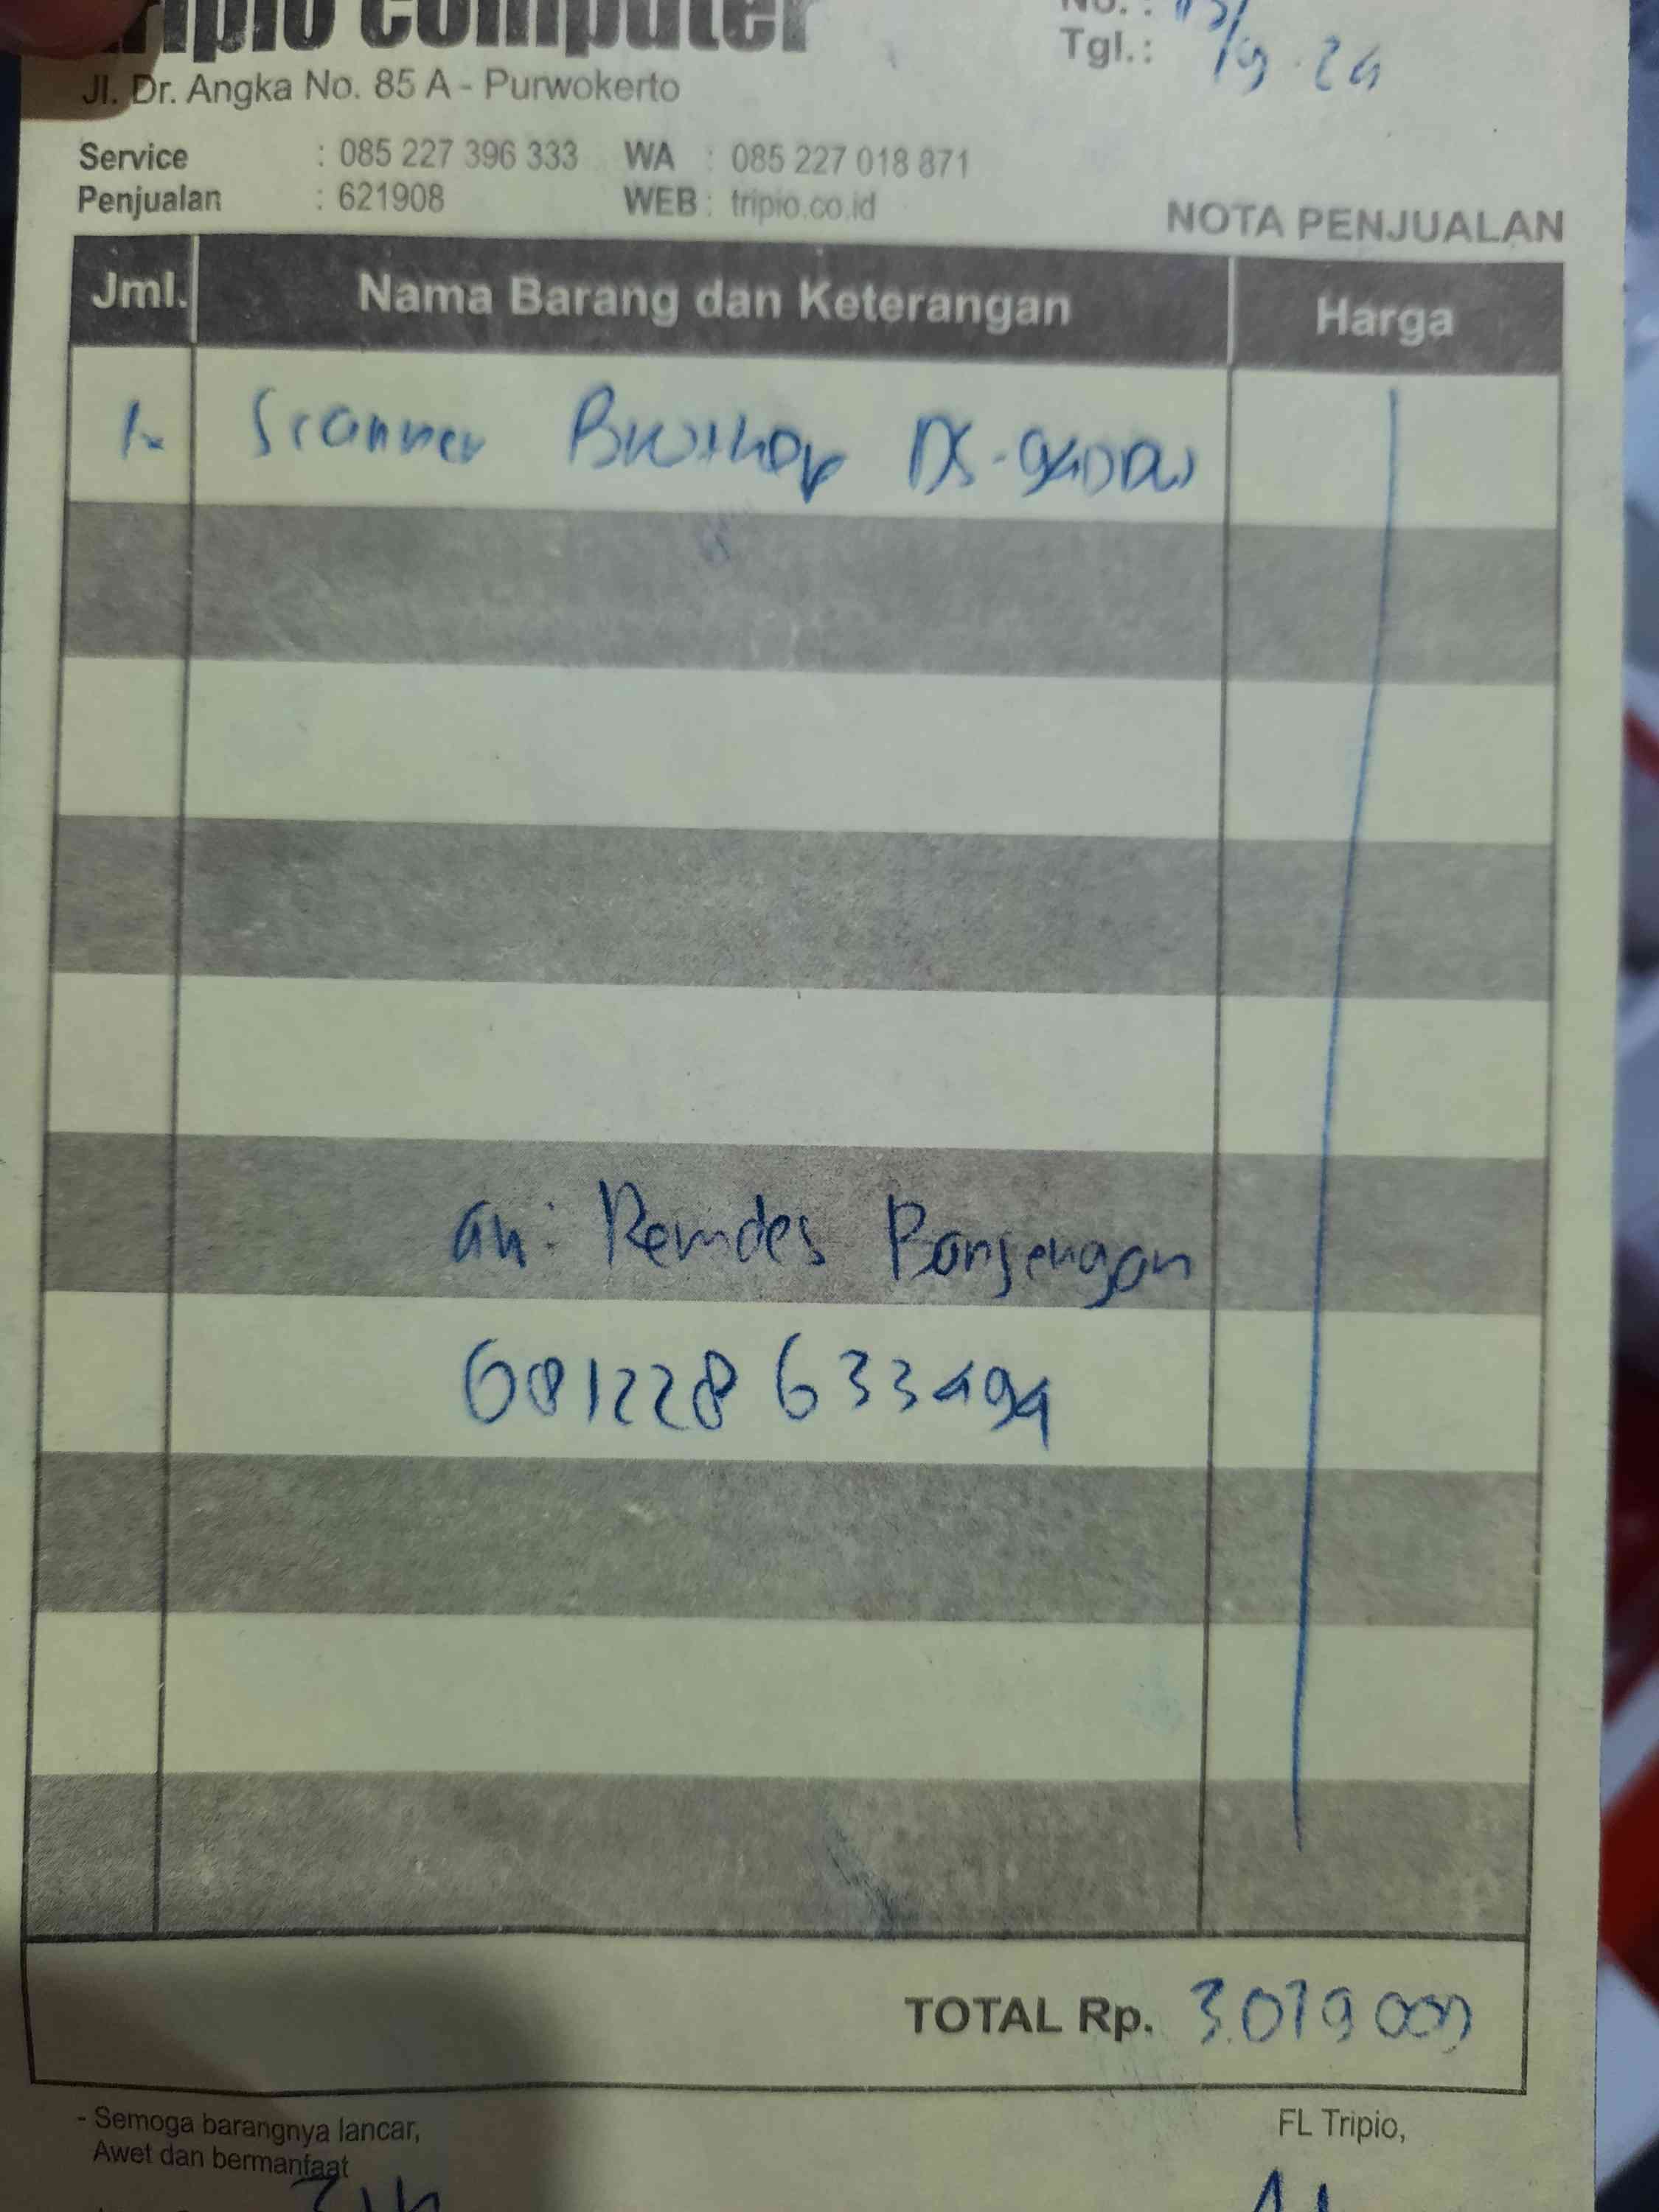 Tripio Computer
No. :
Tgl.: 13/9-24
Jl. Dr. Angka No. 85 A - Purwokerto
Service : 085 227 396 333 WA : 085 227 018 871
Penjualan : 621908 WEB : tripio.co.id
NOTA PENJUALAN
Jml. Nama Barang dan Keterangan Harga
1 Scanner Brother DS-940DW
an: Pemdes
081228 633494
TOTAL Rp. 3.079 000
- Semoga barangnya lancar,
Awet dan bermanfaat
FL Tripio,